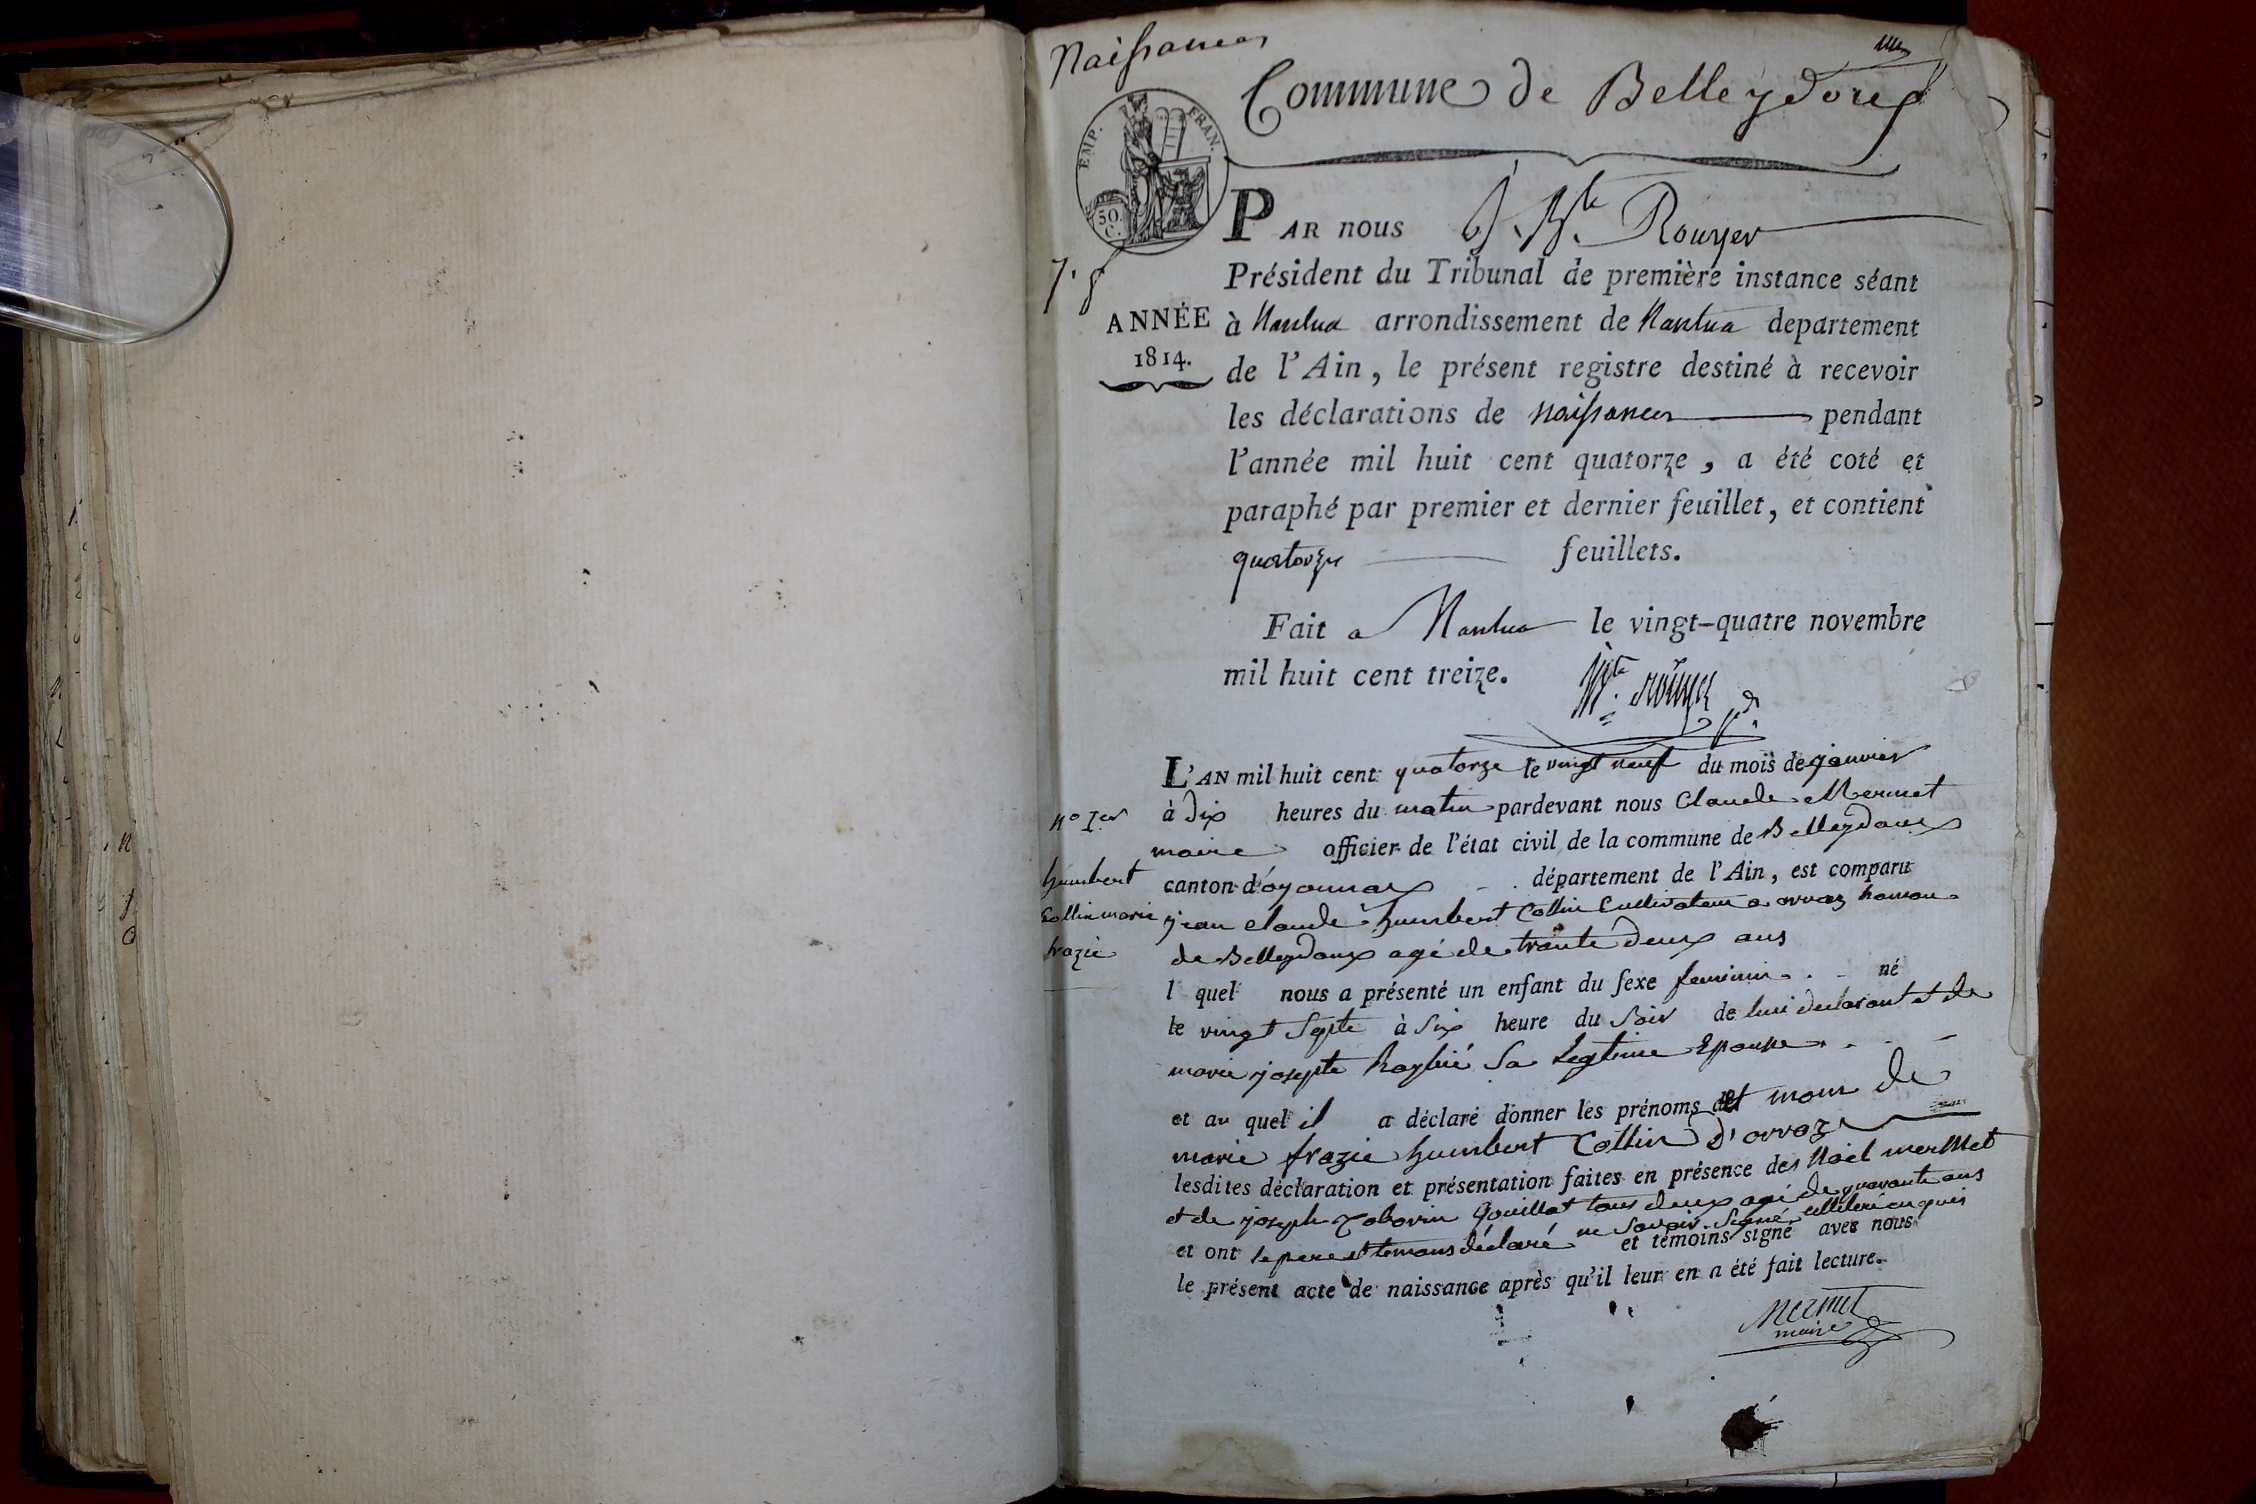 Naissances
Commune de Belleydoux
EMP. FRAN.
50.
C.
PAR nous J. Bte. Rouyer
Président du Tribunal de première instance séant
ANNÉE
1814.
à Nantua arrondissement de Nantua departement
de l'Ain, le présent registre destiné à recevoir
les déclarations de naissances pendant
l'année mil huit cent quatorze, a été coté et
paraphé par premier et dernier feuillet, et contient
quatorze feuillets.
Fait a Nantua le vingt-quatre novembre
mil huit cent treize.
Bte. Rouyer pdt
L'AN mil huit cent quatorze le vingt neuf du mois de janvier
à dix heures du matin pardevant nous Claude Mermet
maire officier de l'état civil de la commune de Belleydoux
canton d'oyonnax département de l'Ain, est comparu
jean claude humbert Collin Cultivateur a orvaz hamau
de Belleydoux agé de trante deux ans
l quel nous a présenté un enfant du sexe feminin né
le vingt septe à six heure du soir de lui declarant et de
marie josepte sa legtime Epouse
et au quel il a déclaré donner les prénoms et nom de
marie frazie humbert Collin d'orvaz
lesdites déclaration et présentation faites en présence des Noël merMet
et de joseph gouillot tous deux agé de quarante ans
et ont le pere et temans déclaré ne savoir signé
et témoins signé avec nous
le présent acte de naissance après qu'il leur en a été fait lecture.
Mermet
maire
No 1er
humbert
Collin marie
frazie